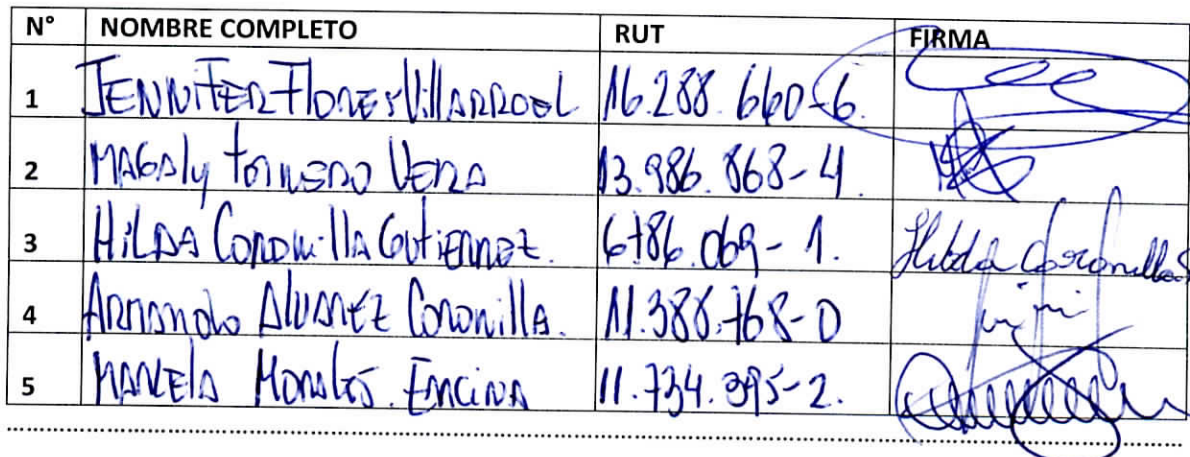 N° NOMBRE COMPLETO RUT FIRMA
1 JENNIFER Flores Villarroel 16.288.660-6.
2 MAGALY Tornero Vera 13.986.868-4.
3 HILDA Coronilla Gutierrez. 6786.069-1. Hilda Coronilla G
4 Armando Alvarez Coronilla. 11.388.768-0
5 MARCELA Morales Encina 11.734.395-2.